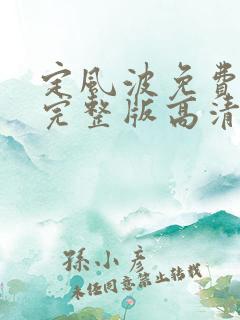 定风波免费
完整版高清
孫小彥
未经同意禁止转载